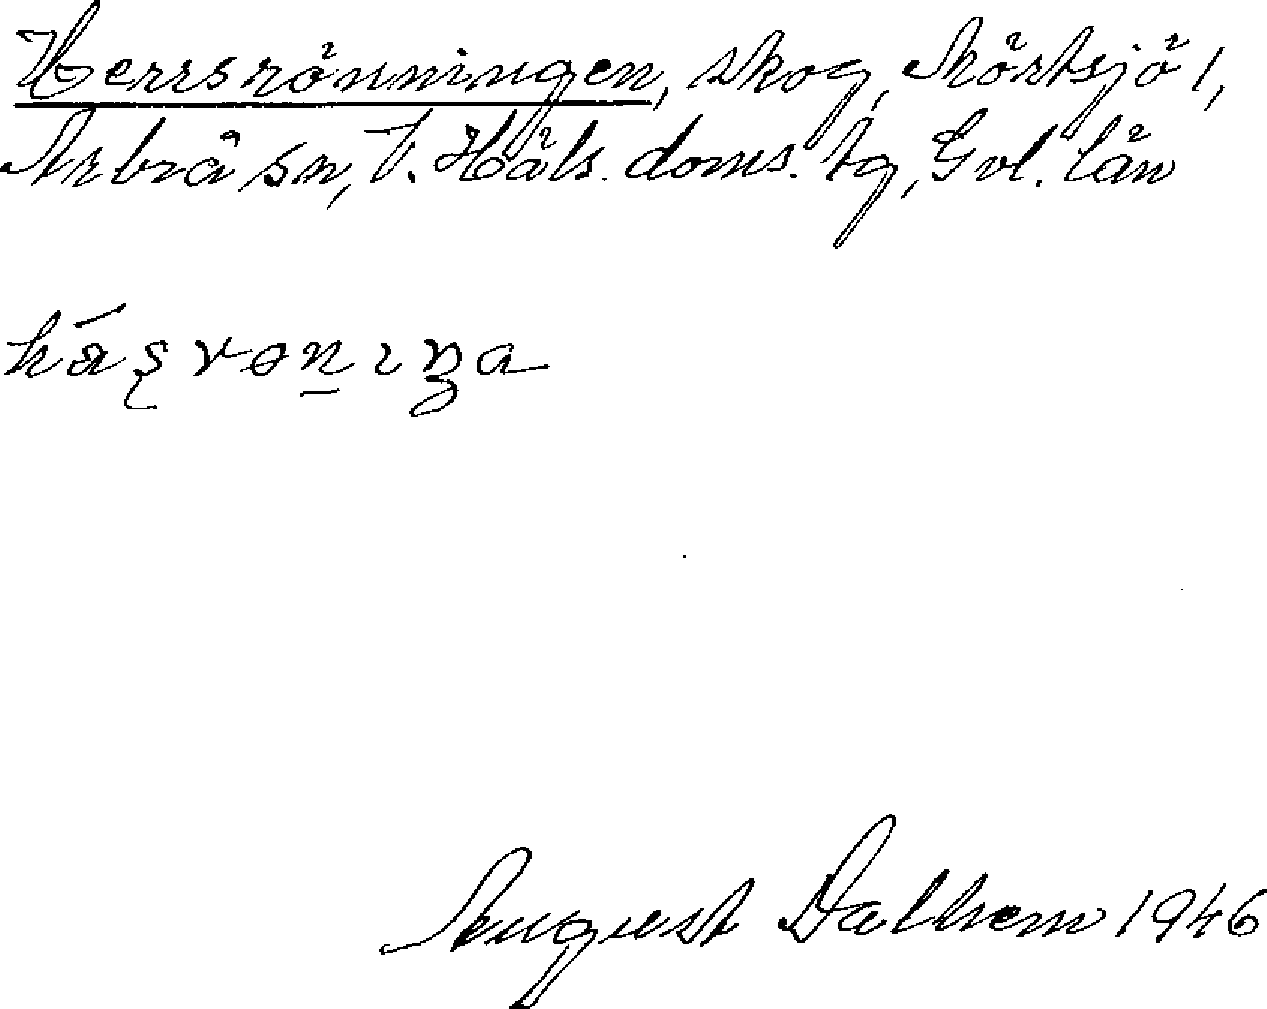 Herrsrönningen, skog, Mörtsjö 1,
Arbrå sn, V. Häls. doms. tg, Gvl. län
August Dalhem 1946